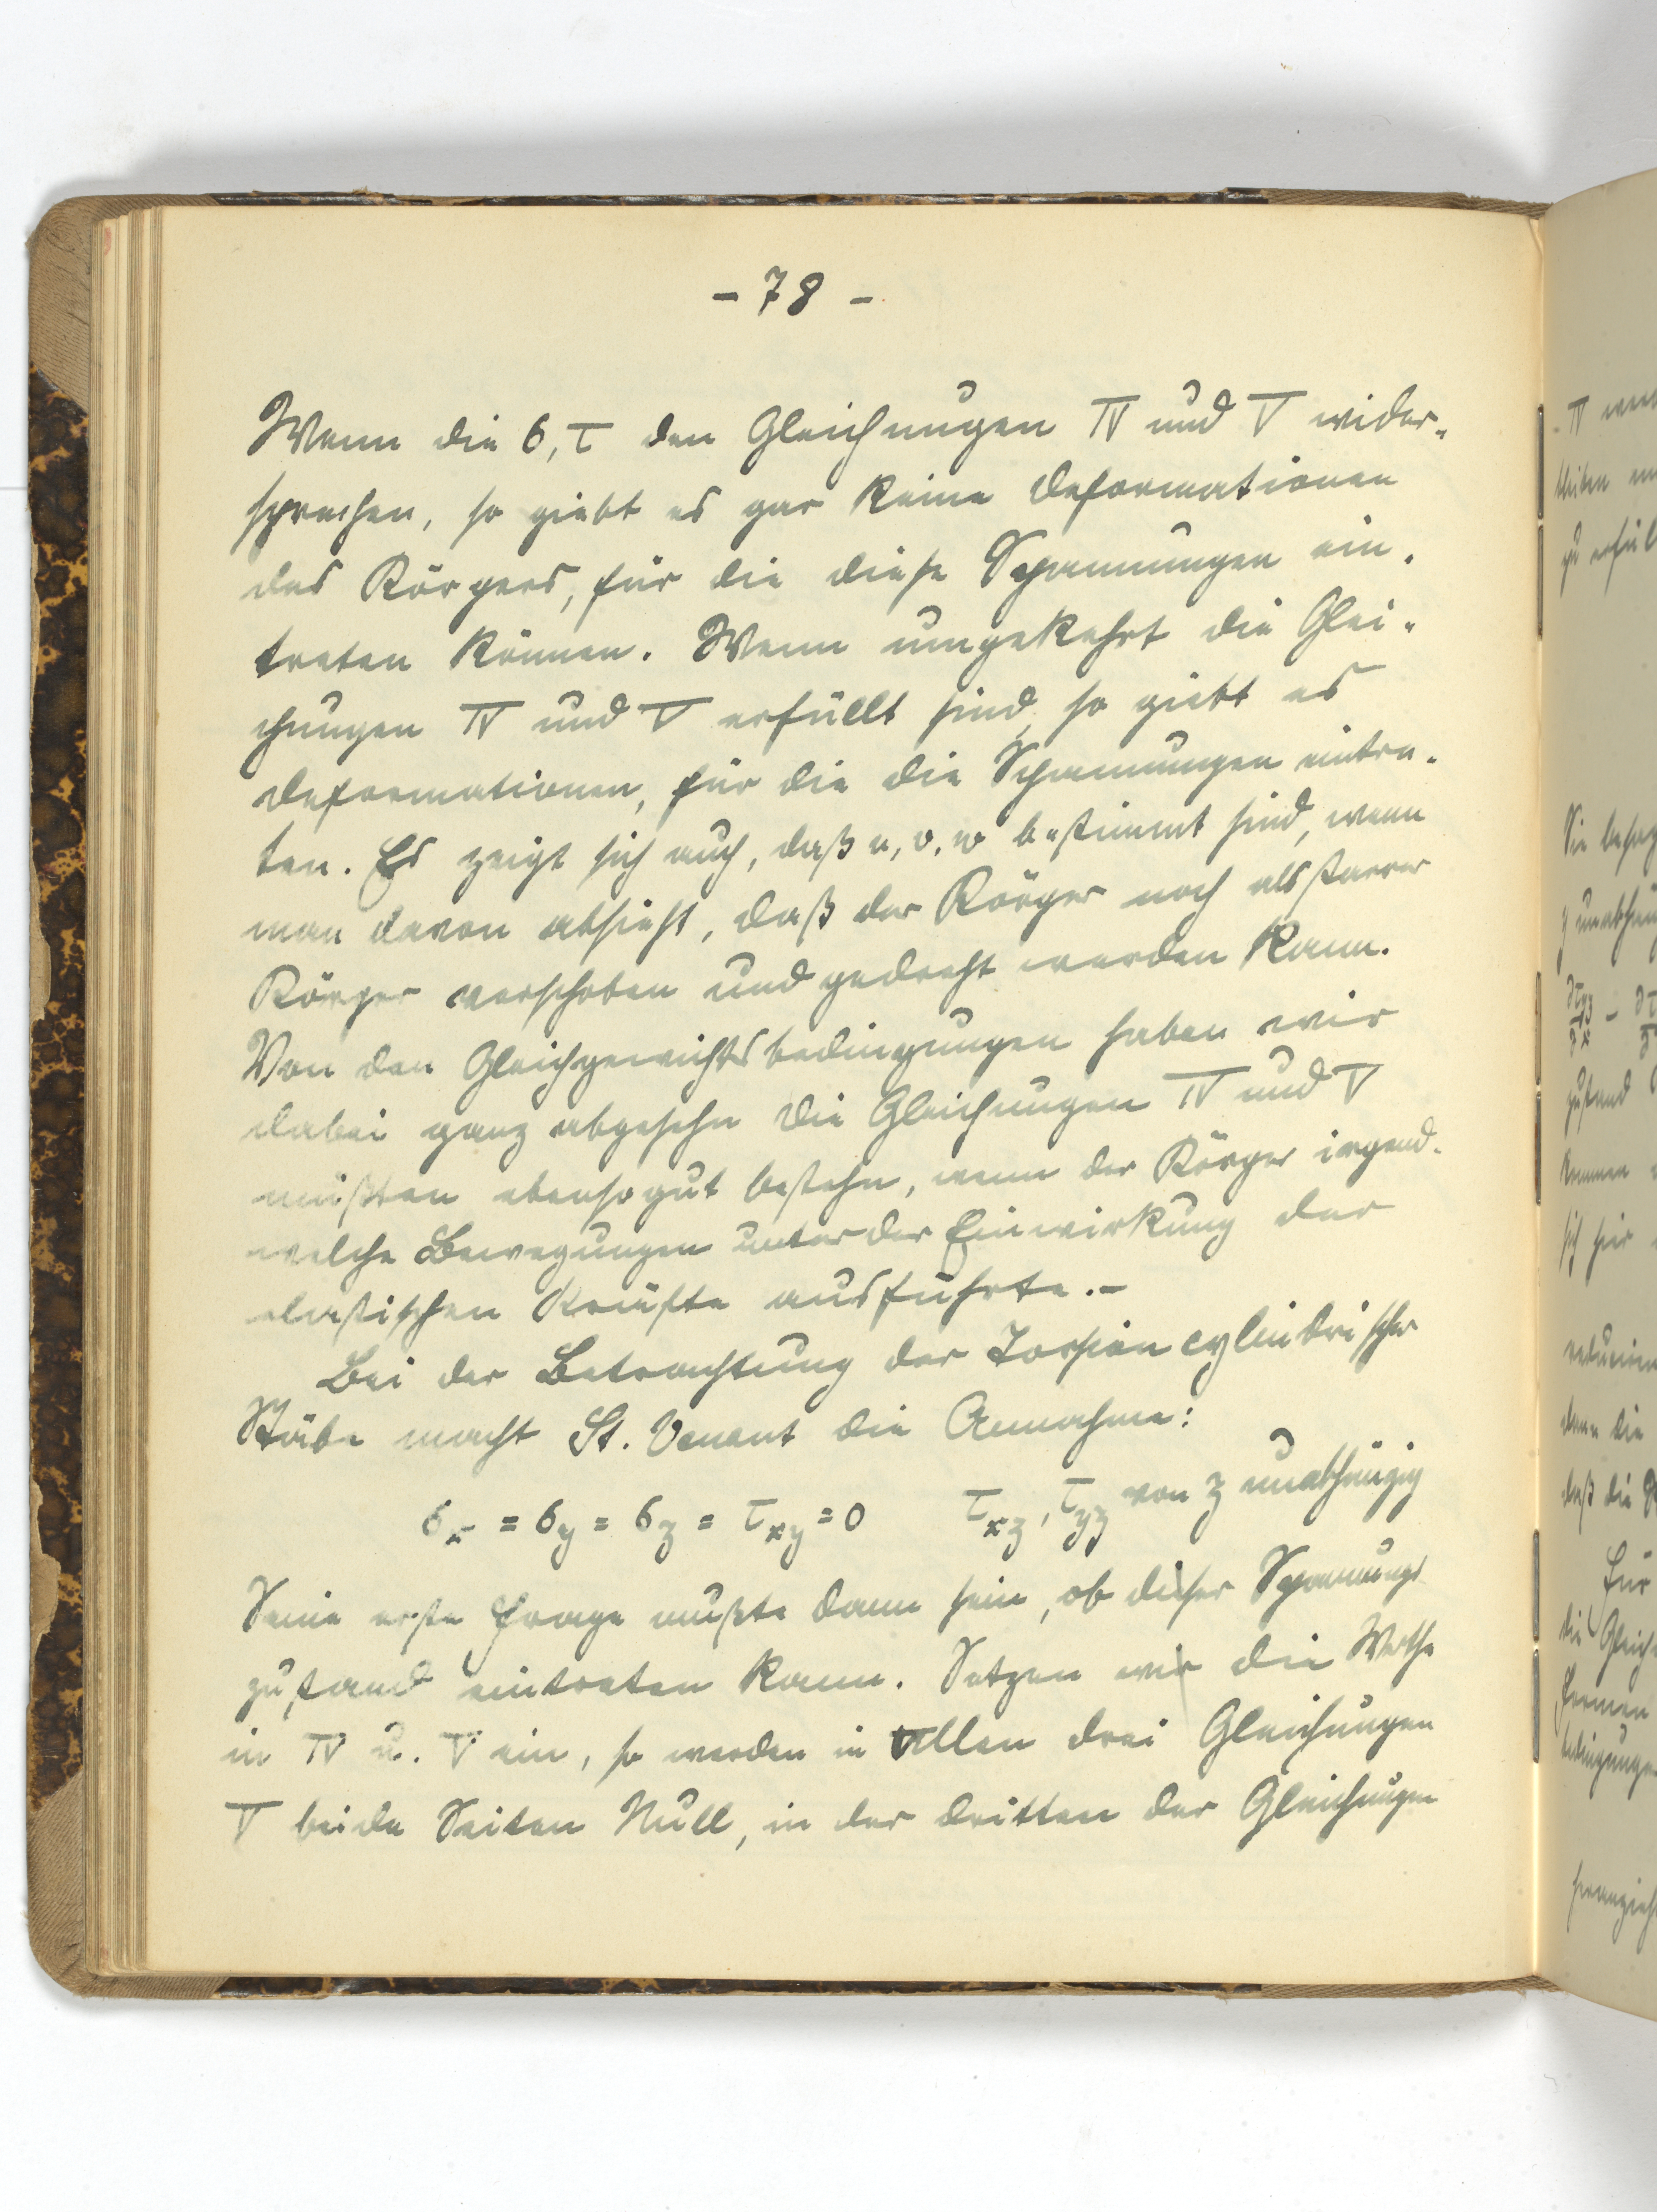 - 78 -
Wenn die σ, τ den Gleichungen IV und V wider-
sprechen, so giebt es gar keine Deformationen
des Körpers, für die diese Spannungen ein-
treten können. Wenn umgekehrt die Glei-
chungen IV und V erfüllt sind, so giebt es
Deformationen, für die die Spannungen eintre-
ten. Es zeigt sich auch, daß u, v, w bestimmt sind, wenn
man davon absieht, daß der Körper noch als starrer
Körper verschoben und gedreht werden kann.
Von den Gleichgewichtsbedingungen haben wir
dabei ganz abgesehn die Gleichungen IV und V
müßten ebenso gut bestehn, wenn der Körper irgend-
welche Bewegungen unter der Einwirkung der
elastischen Kräfte ausführte.-
Bei der Betrachtung der Torsion cylindrischer
Stäbe macht St. Venant die Annahme:
σx = σy = σz = τxy = 0 τxz, τyz von z unabhängig
Seine erste Frage mußte dann sein, ob dieser Spannungs
zustand eintreten kann. Setzen wir die Werthe
in IV u. V ein, so werden in allen drei Gleichungen
V beide Seiten Null, in der dritten der Gleichungen